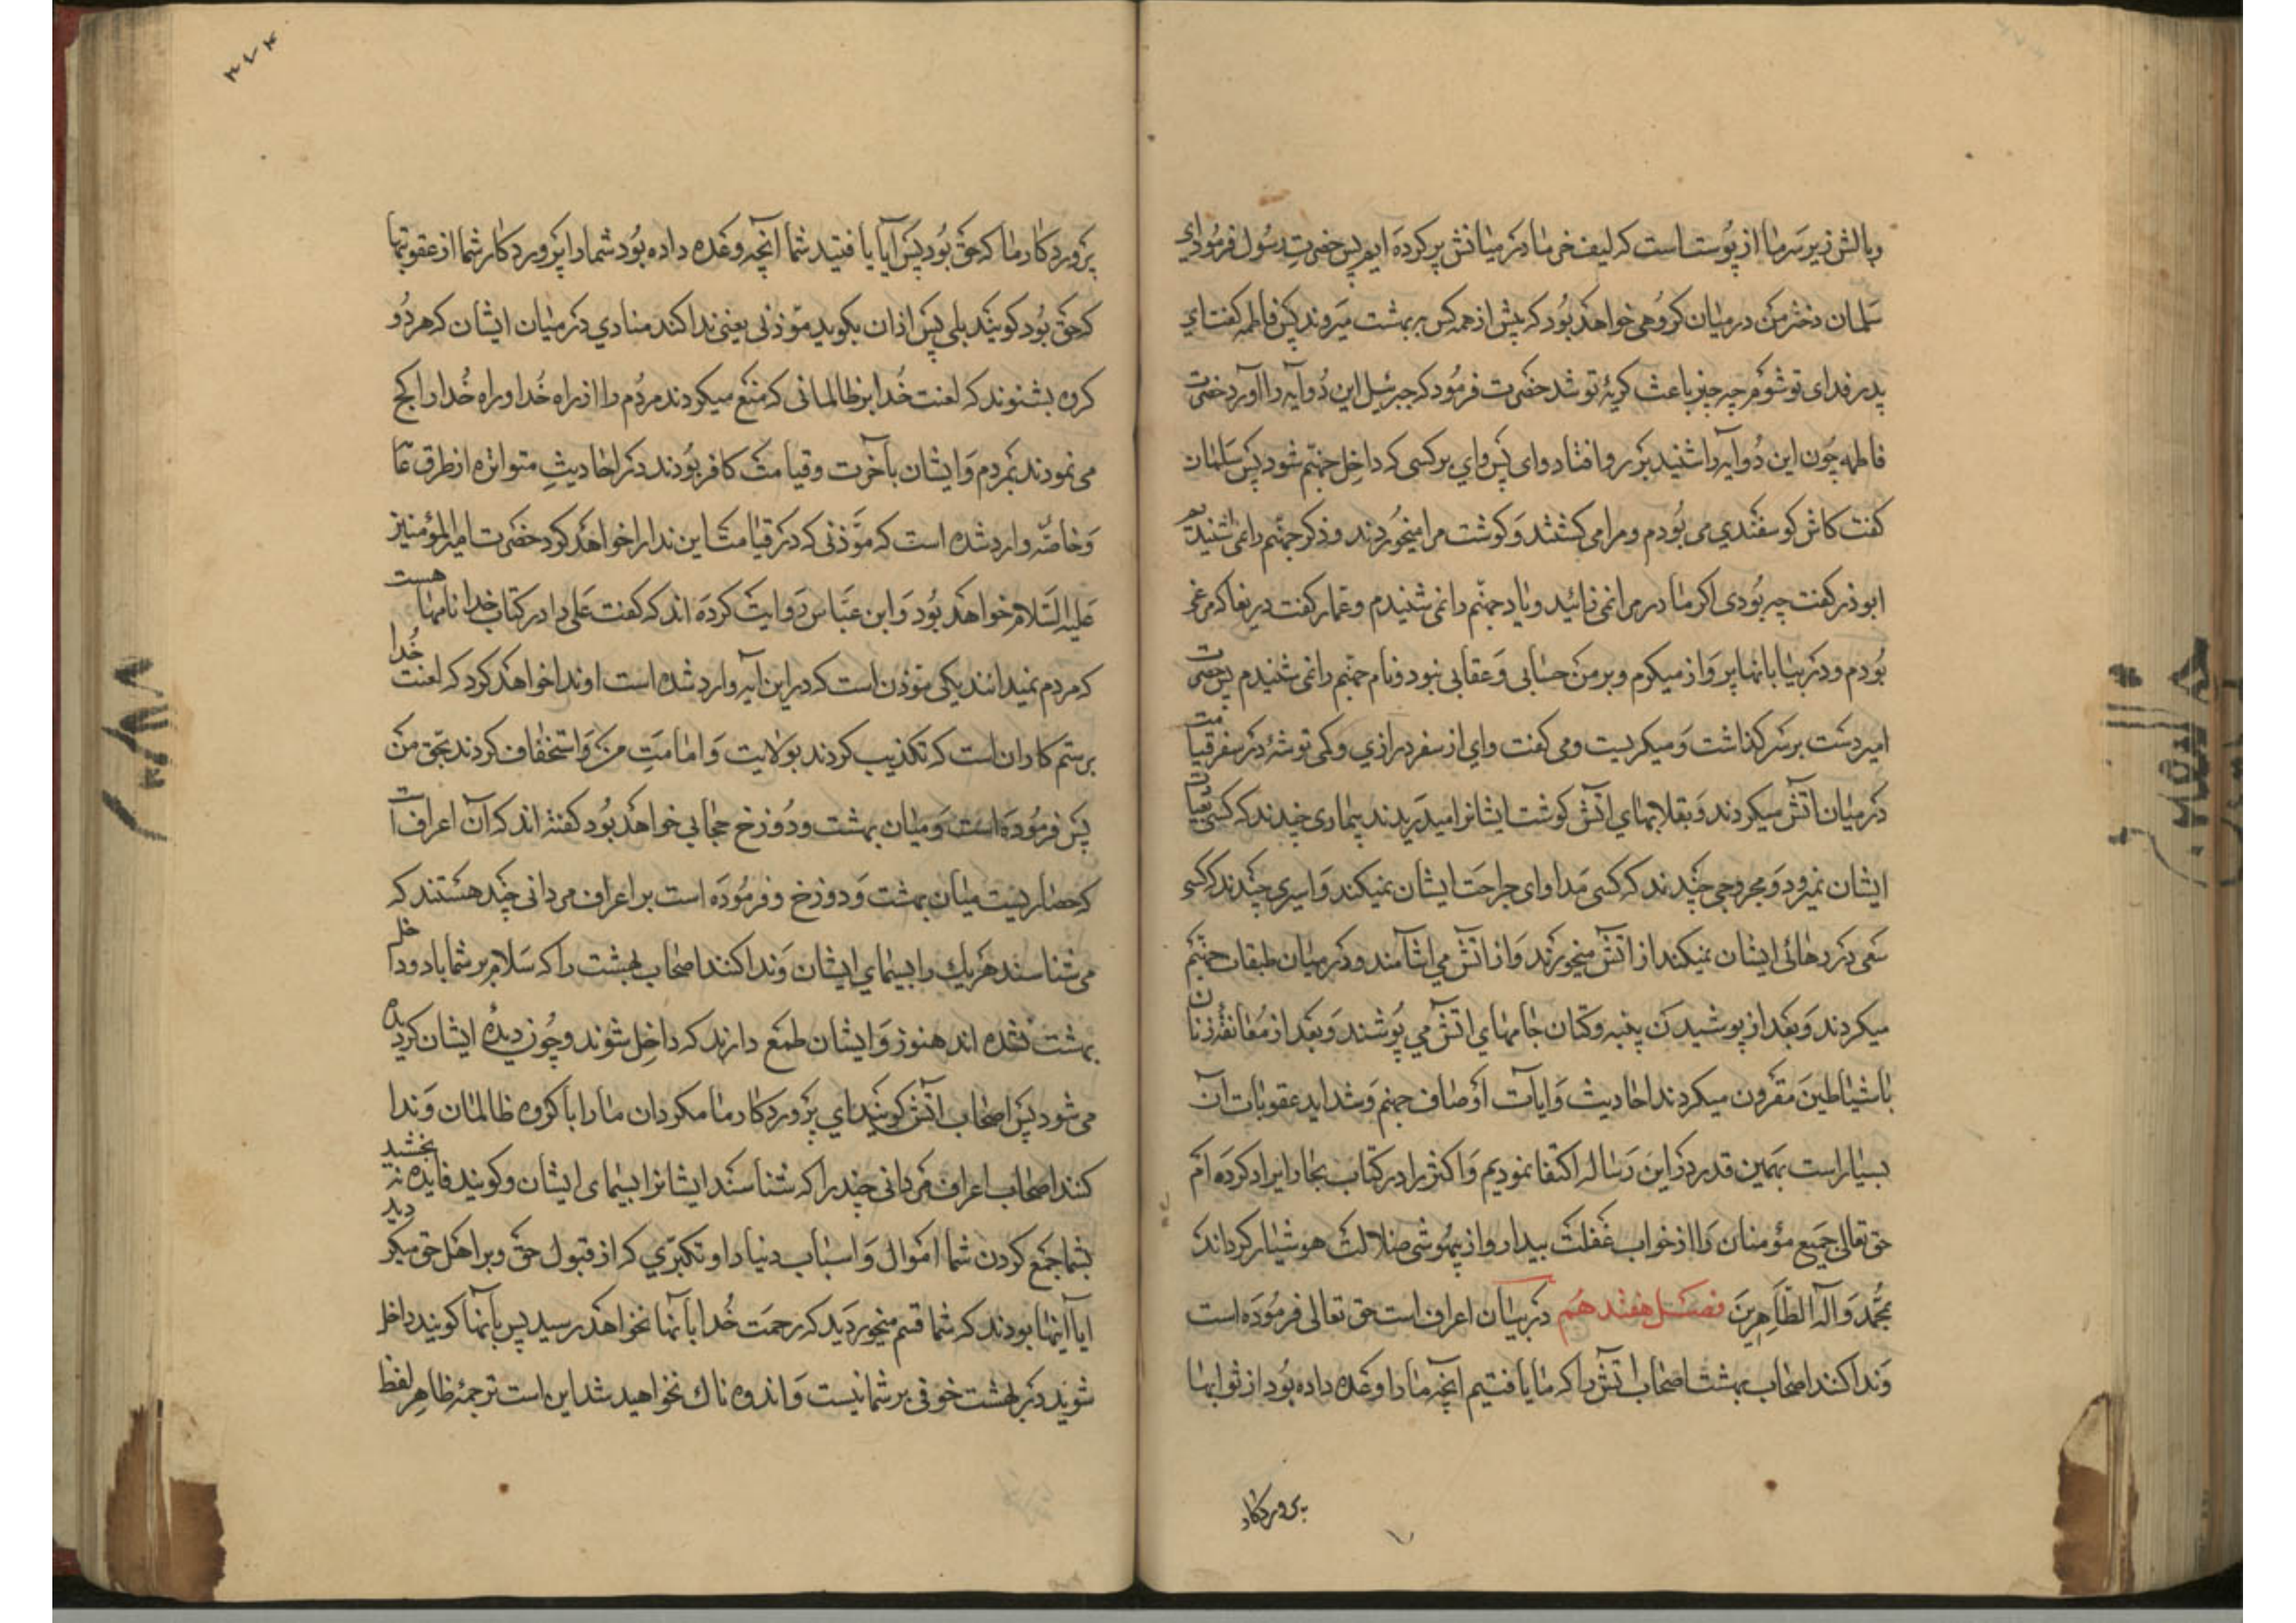 وبالش زیر سر ما از پوست است که لیف خرما در میانش پر کرده ایم پس حضرت رسول فرمود ای
سلمان دختر من در میان کروهی خواهد بود که پیش از همه کس ببهشت میروند پس فاطمه کفت ای
پدر فدای تو شوم چه چیز باعث کریهٔ تو شد حضرت فرمود که جبرئیل این دو آیه را آورد حضرت
فاطمه چون این دو آیه را شنید برو افتاد وای پس وای بر کسی که داخل جهنم شود پس سلمان
کفت کاش کوسفندی می بودم و مرا می کشتند و کوشت مرا میخوردند و ذکر جهنم را نمی شنیدم
ابوذر کفت چه بودی اکر مادر مرا نمی زائید و یاد جهنم را نمی شنیدم و عمار کفت دریغا که مرغی
بودم و در بیابانها پرواز میکردم و بر من حسابی و عقابی نبود و نام جهنم را نمی شنیدم پس حضرت
امیر دست بر سر کذاشت و میکریست و می کفت وای از سفر درازی و کمی توشهٔ در سفر قیامت
در میان آتش میکردند و بقلابهای آتش کوشت ایشانرا میدریدند بیماری چندند که کسی بعیادت
ایشان نمیرود و مجروحی چندند که کسی مداوای جراحت ایشان نمیکند و اسیری چندند که کسی
سعی در رهائی ایشان نمیکند از آتش میخورند و از آتش می آشامند و در میان طبقات جهنم
میکردند و بعد از پوشیدن پنبه و کتان جامهای آتش می پوشند و بعد از معانقهٔ زنان
با شیاطین مقرون میکردند احادیث و آیات اوصاف جهنم و شداید عقوبات آن
بسیار است بهمین قدر در این رساله اکتفا نمودیم و اکثر را در کتاب بحار ایراد کرده ام
حق تعالی جمیع مؤمنان را از خواب غفلت بیدار و از بیهوشی ضلالت هوشیار کرداند
بمحمد وآله الطاهرین فصل هفدهم در بیان اعراف است حق تعالی فرموده است
و ندا کنند اصحاب بهشت اصحاب آتش را که ما یافتیم آنچه ما را وعده داده بود از ثوابها
پروردکار
۳۷۴
پروردکار ما که حق بود پس آیا یافتید شما آنچه وعده داده بود شما را پروردکار شما از عقوبتها
که حق بود کویند بلی پس اذان بکوید مؤذنی یعنی ندا کند منادی در میان ایشان که هر دو
کروه بشنوند که لعنت خدا بر ظالمانی که منع میکردند مردم را از راه خدا و راه خدا را کج
می نمودند بمردم و ایشان بآخرت و قیامت کافر بودند در احادیث متواتره از طرق عامه
و خاصه وارد شده است که مؤذنی که در قیامت این ندا را خواهد کرد حضرت امیرالمؤمنین
علیه السلام خواهد بود و ابن عباس روایت کرده اند که کفت علی را در کتاب خدا نامها هست
که مردم نمیدانند یکی مؤذن است که در این آیه وارد شده است او ندا خواهد کرد که لعنت خدا
بر ستمکاران است که تکذیب کردند بولایت و امامت من و استخفاف کردند بحق من
پس فرموده است و میان بهشت و دوزخ حجابی خواهد بود کفته اند که آن اعراف است
که حصاریست میان بهشت و دوزخ و فرموده است بر اعراف مردانی چند هستند که
می شناسند هر یک را بسیمای ایشان و ندا کنند اصحاب بهشت را که سلام بر شما باد و داخل
بهشت نشده اند هنوز و ایشان طمع دارند که داخل شوند و چون دیدهٔ ایشان کردیده
می شود پس اصحاب آتش کویند ای پروردکار ما مکردان ما را با کروه ظالمان و ندا
کنند اصحاب اعراف مردانی چند را که شناسند ایشانرا بسیمای ایشان و کویند فایده نبخشید
بشما جمع کردن شما اموال و اسباب دنیا را و تکبری که از قبول حق و بر اهل حق میکردید
آیا اینها بودند که شما قسم میخوردید که رحمت خدا بآنها نخواهد رسید پس بآنها کویند داخل
شوید در بهشت خوفی بر شما نیست و اندوه ناك نخواهید شد این است ترجمهٔ ظاهر لفظ